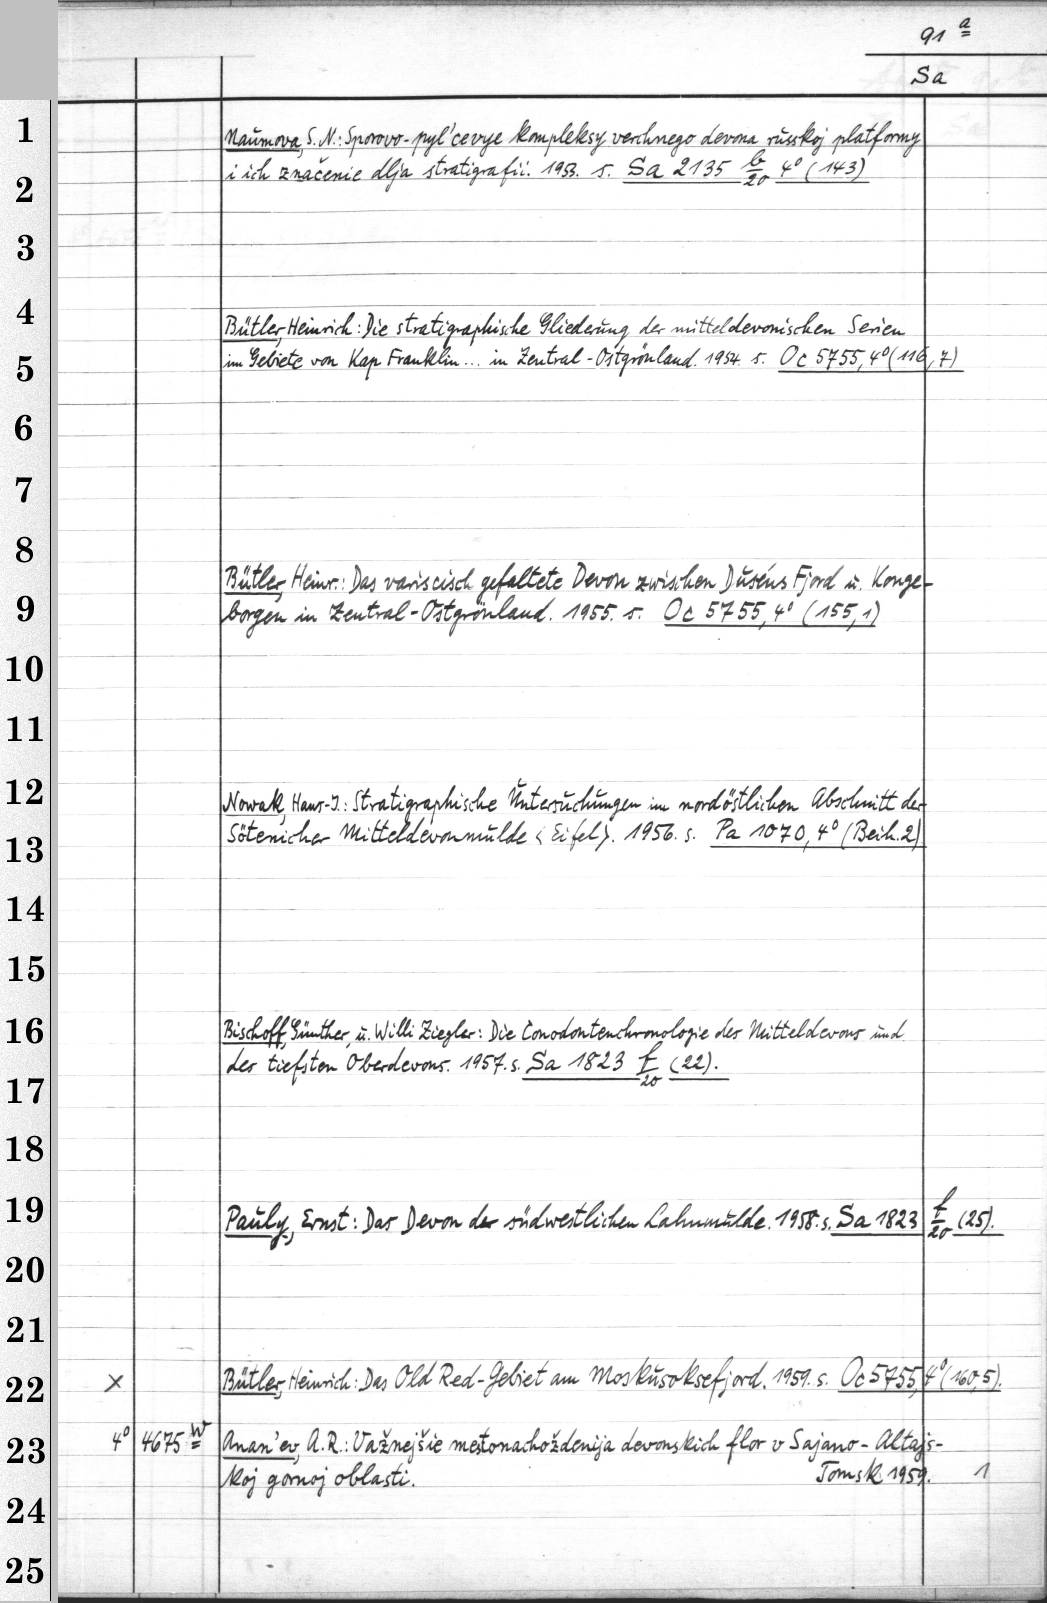 91 a
Sa
1
Naumova, S. N.: Sporovo-pyl'cevye kompleksy verchnego devona russkoj platformy
2
i ich značenie dlja stratigrafii. 1953. s. Sa 2135 b/20 4° (143)
3
4
Bütler, Heinrich: Die stratigraphische Gliederung der mitteldevonischen Serien
5
im Gebiete von Kap Franklin... in Zentral-Ostgrönland. 1954. s. Oc 5755, 4° (116, 7)
6
7
8
Bütler, Heinr.: Das variscisch gefaltete Devon zwischen Duséns Fjord u. Konge-
9
borgen in Zentral-Ostgrönland. 1955. s. Oc 5755, 4° (155, 1)
10
11
12
Nowak, Hans-J.: Stratigraphische Untersuchungen im nordöstlichen Abschnitt der
13
Sötenicher Mitteldevonmulde <Eifel>. 1956. s. Pa 1070, 4° (Beih. 2)
14
15
16
Bischoff, Günther, u. Willi Ziegler: Die Conodontenchronologie des Mitteldevons und
des tiefsten Oberdevons. 1957. s. Sa 1823 f/20 (22).
17
18
19
Pauly, Ernst: Das Devon der südwestlichen Lahnmulde. 1958. s. Sa 1823 f/20 (25).
20
21
22
x Bütler, Heinrich: Das Old Red-Gebiet am Moskusoksefjord. 1959. s. Oc 5755, 4° (160, 5).
23
4° 4675 w Anan'ev, A. R.: Važnejšie mestonachoždenija devonskich flor v Sajano-Altajs-
koj gornoj oblasti. Tomsk 1959. 1
24
25